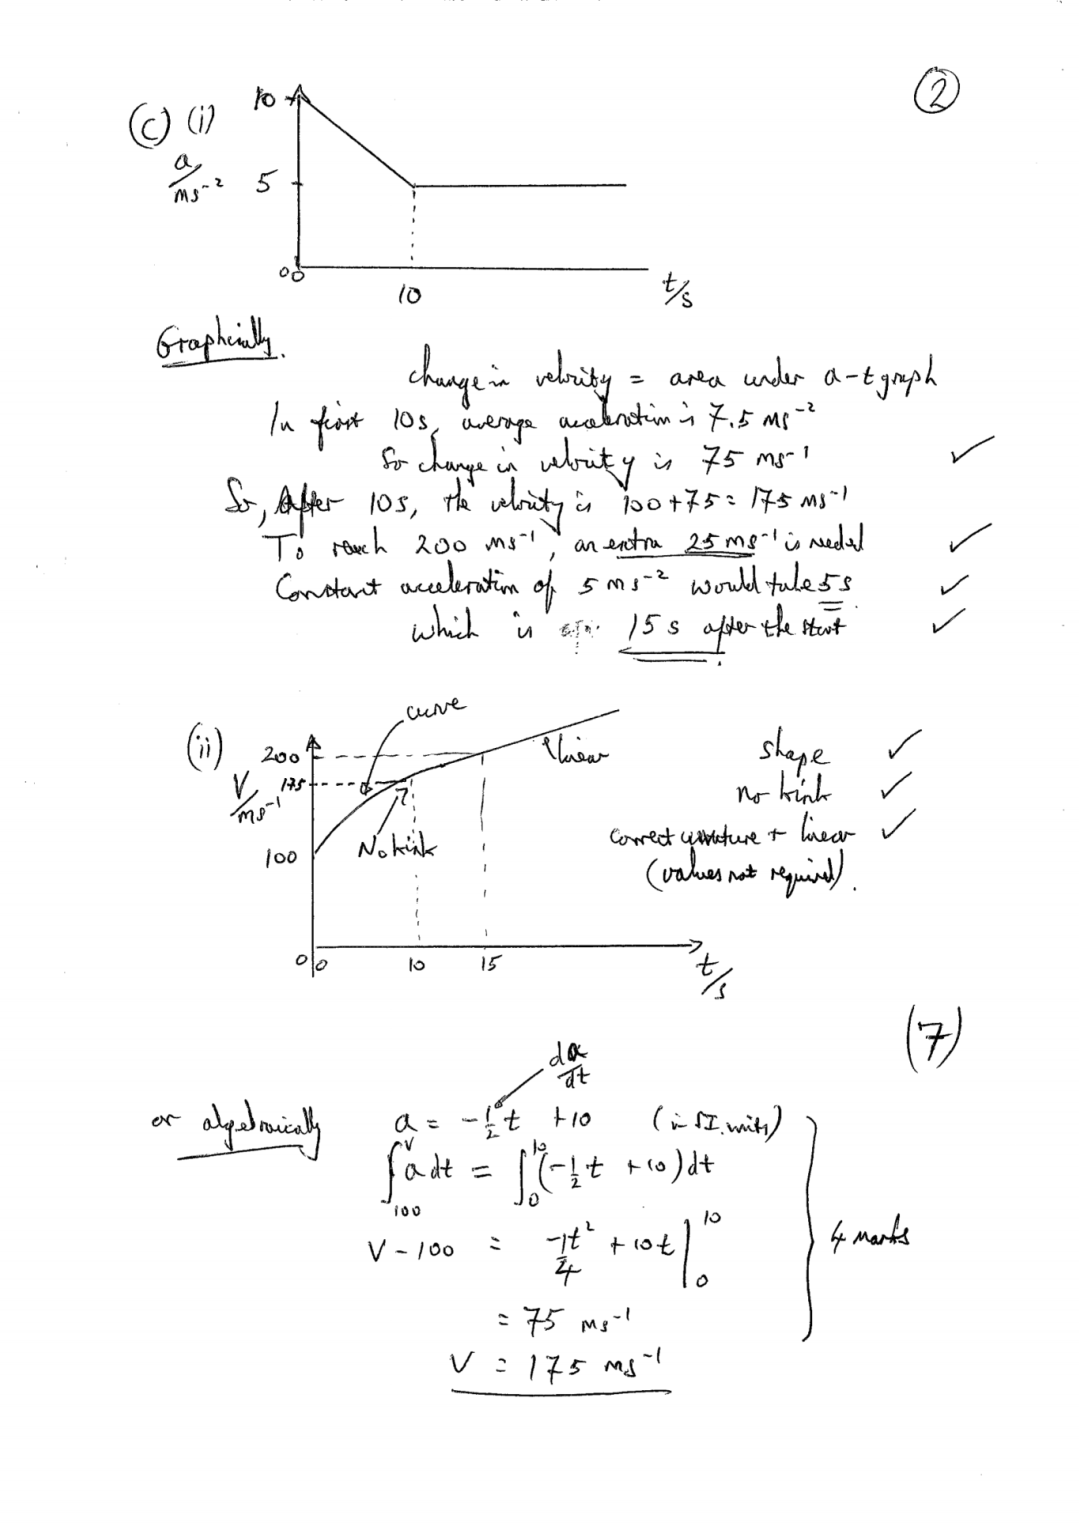 ②
(c) (i)
a/ms⁻²
10
5
0 0
10
t/s
Graphically.
change in velocity = area under a-t graph
In first 10s, average acceleration is 7.5 ms⁻²
So change in velocity is 75 ms⁻¹ ✓
So, After 10s, the velocity is 100+75 = 175 ms⁻¹
To reach 200 ms⁻¹, an extra 25 ms⁻¹ is needed ✓
Constant acceleration of 5 ms⁻² would take 5s ✓
which is 15 s after the start. ✓
(ii)
curve
200
175
V/ms⁻¹
100
linear
No kink
0 0
10
15
t/s
shape ✓
no kink ✓
correct curvature + linear ✓
(values not required).
(7)
da/dt
or algebraically
a = -½t +10 (in SI. units)
∫₁₀₀ⱽ a dt = ∫₀¹⁰(-½t +10)dt
V - 100 = -¼t² + 10t |₀¹⁰
= 75 ms⁻¹
V = 175 ms⁻¹
4 marks